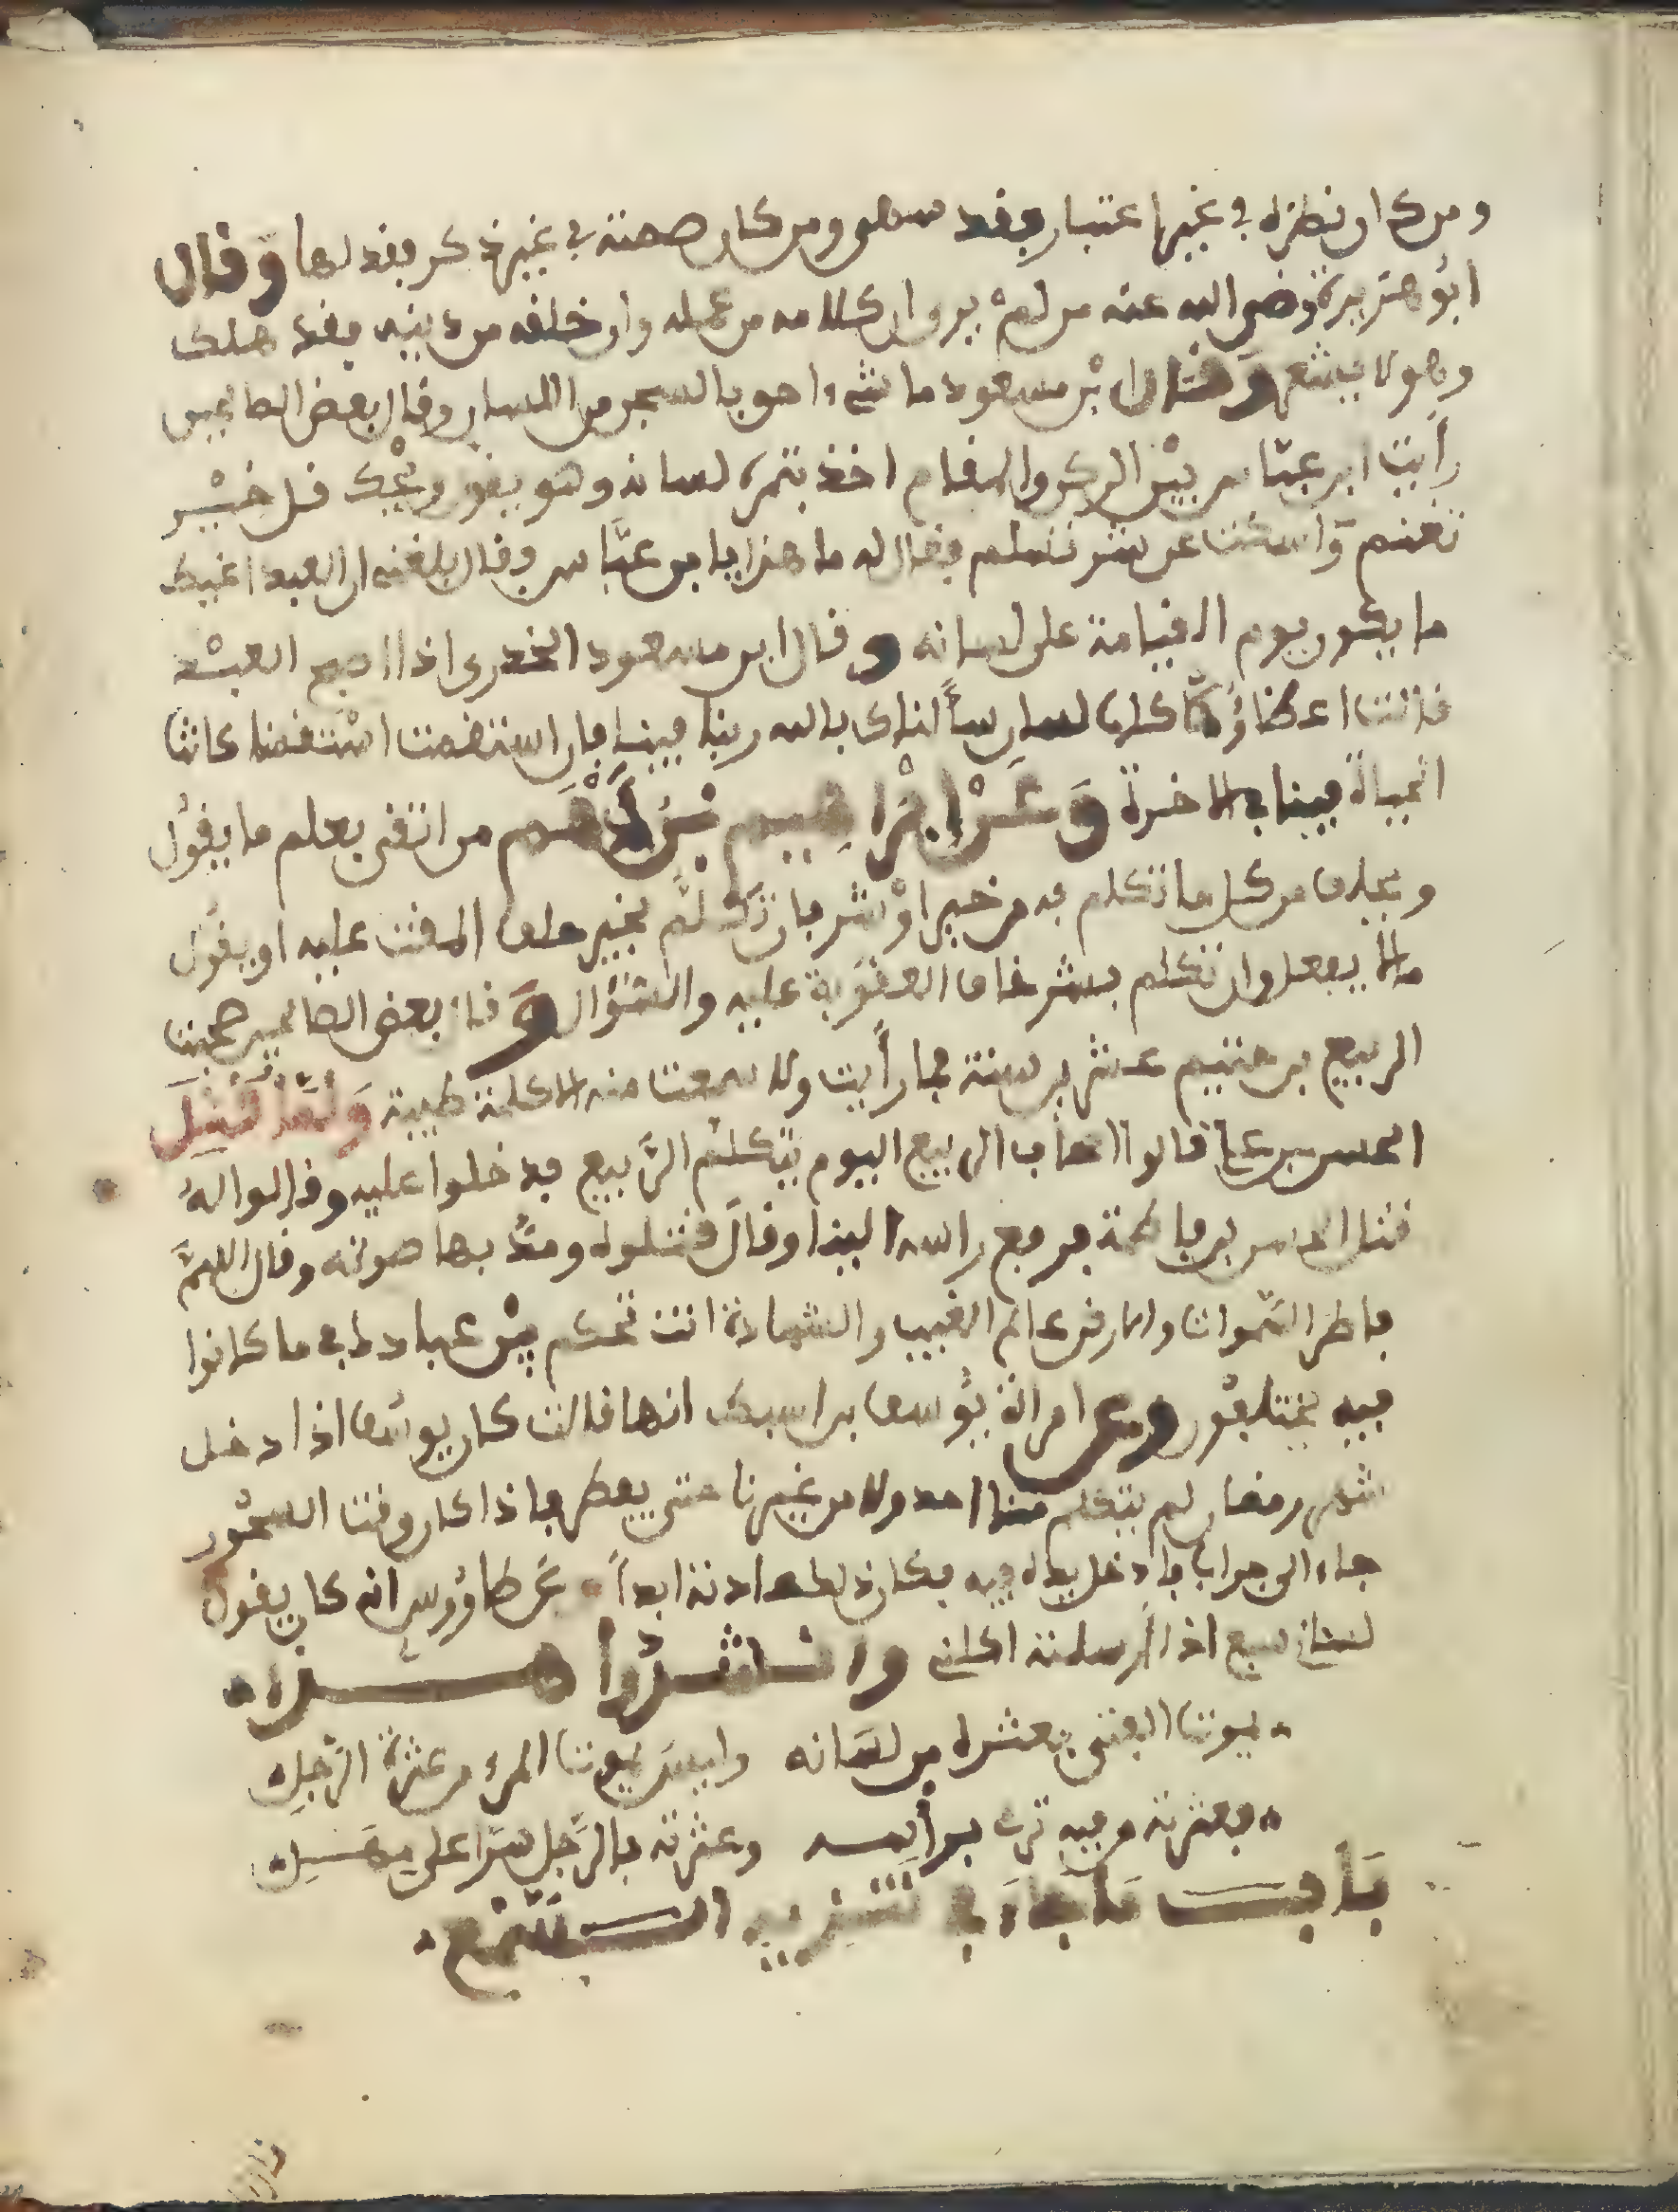 ومن كان نظره في غير اعتبار فقد سهى ومن كان صمته في غير ذكر فقد لها وقال
ابو هريرة رضي الله عنه من لم ير ان كلامه من عمله وان خلفه من دينه فقد هلك
وهو لا يشعر وقال ابن مسعود ما شيء احق بالسجن من اللسان وقال بعض الصالحين
رأيت ابن عباس بين الركن والمقام اخذ بثمرة لسانه وهو يقول ويحك قل خير
تغنم واسكت عن شر تسلم فقال له ما هذا يا بن عباس وقال بلغني ان العبد
ما يكون يوم القيامة على لسانه وقال ابو مسعود الخدري اذا اصبح العبد
قالت اعضاؤه كلها لسان سألناك بالله ربنا فينا فان استقمت استقمنا كانت
الحياة فينا في الاخرة وعن ابراهيم بن ادهم من اتقى يعلم ما يقول
ويخاف من كل ما تكلم به من خير او شر فان تكلم بخير خاف المقت عليه او يقول
ما لا يفعل وان تكلم بشر خاف العقوبة عليه والسؤال وقال بعض الصالحين صحبت
الربيع بن خثيم عشرين سنة فما رأيت ولا سمعت منه الا كلمة طيبة ولما قتل
الحسن بن علي قالوا اصحاب الربيع اليوم يتكلم الربيع فدخلوا عليه وقالوا له
قتل الحسن بن فاطمة فرفع راسه الينا وقال قتلوه ومد بها صوته وقال اللهم
فاطر السموات والارض عالم الغيب والشهادة انت تحكم بين عبادك في ما كانوا
فيه يختلفون وعن امراة يوسف بن اسبك انها قالت كان يوسف اذا دخل
شهر رمضان لم يتكلم منا احد ولا من غيرنا حتى يفطر فاذا كان وقت السحور
جاء الى جراب فادخل يداه فيه فكان ذلك ابدا عن طاووس انه كان يقول
لساني سبع اذا ارسلته اكلني وانشدوا هذا
يموت الفتى بعثراه من لسانه وليس يموت المرء من عثرة الرجل
فعثرته من فيه ترم براسه وعثرته بالرجل تبرا على مهل
باب ما جاء في تنزيه السمع